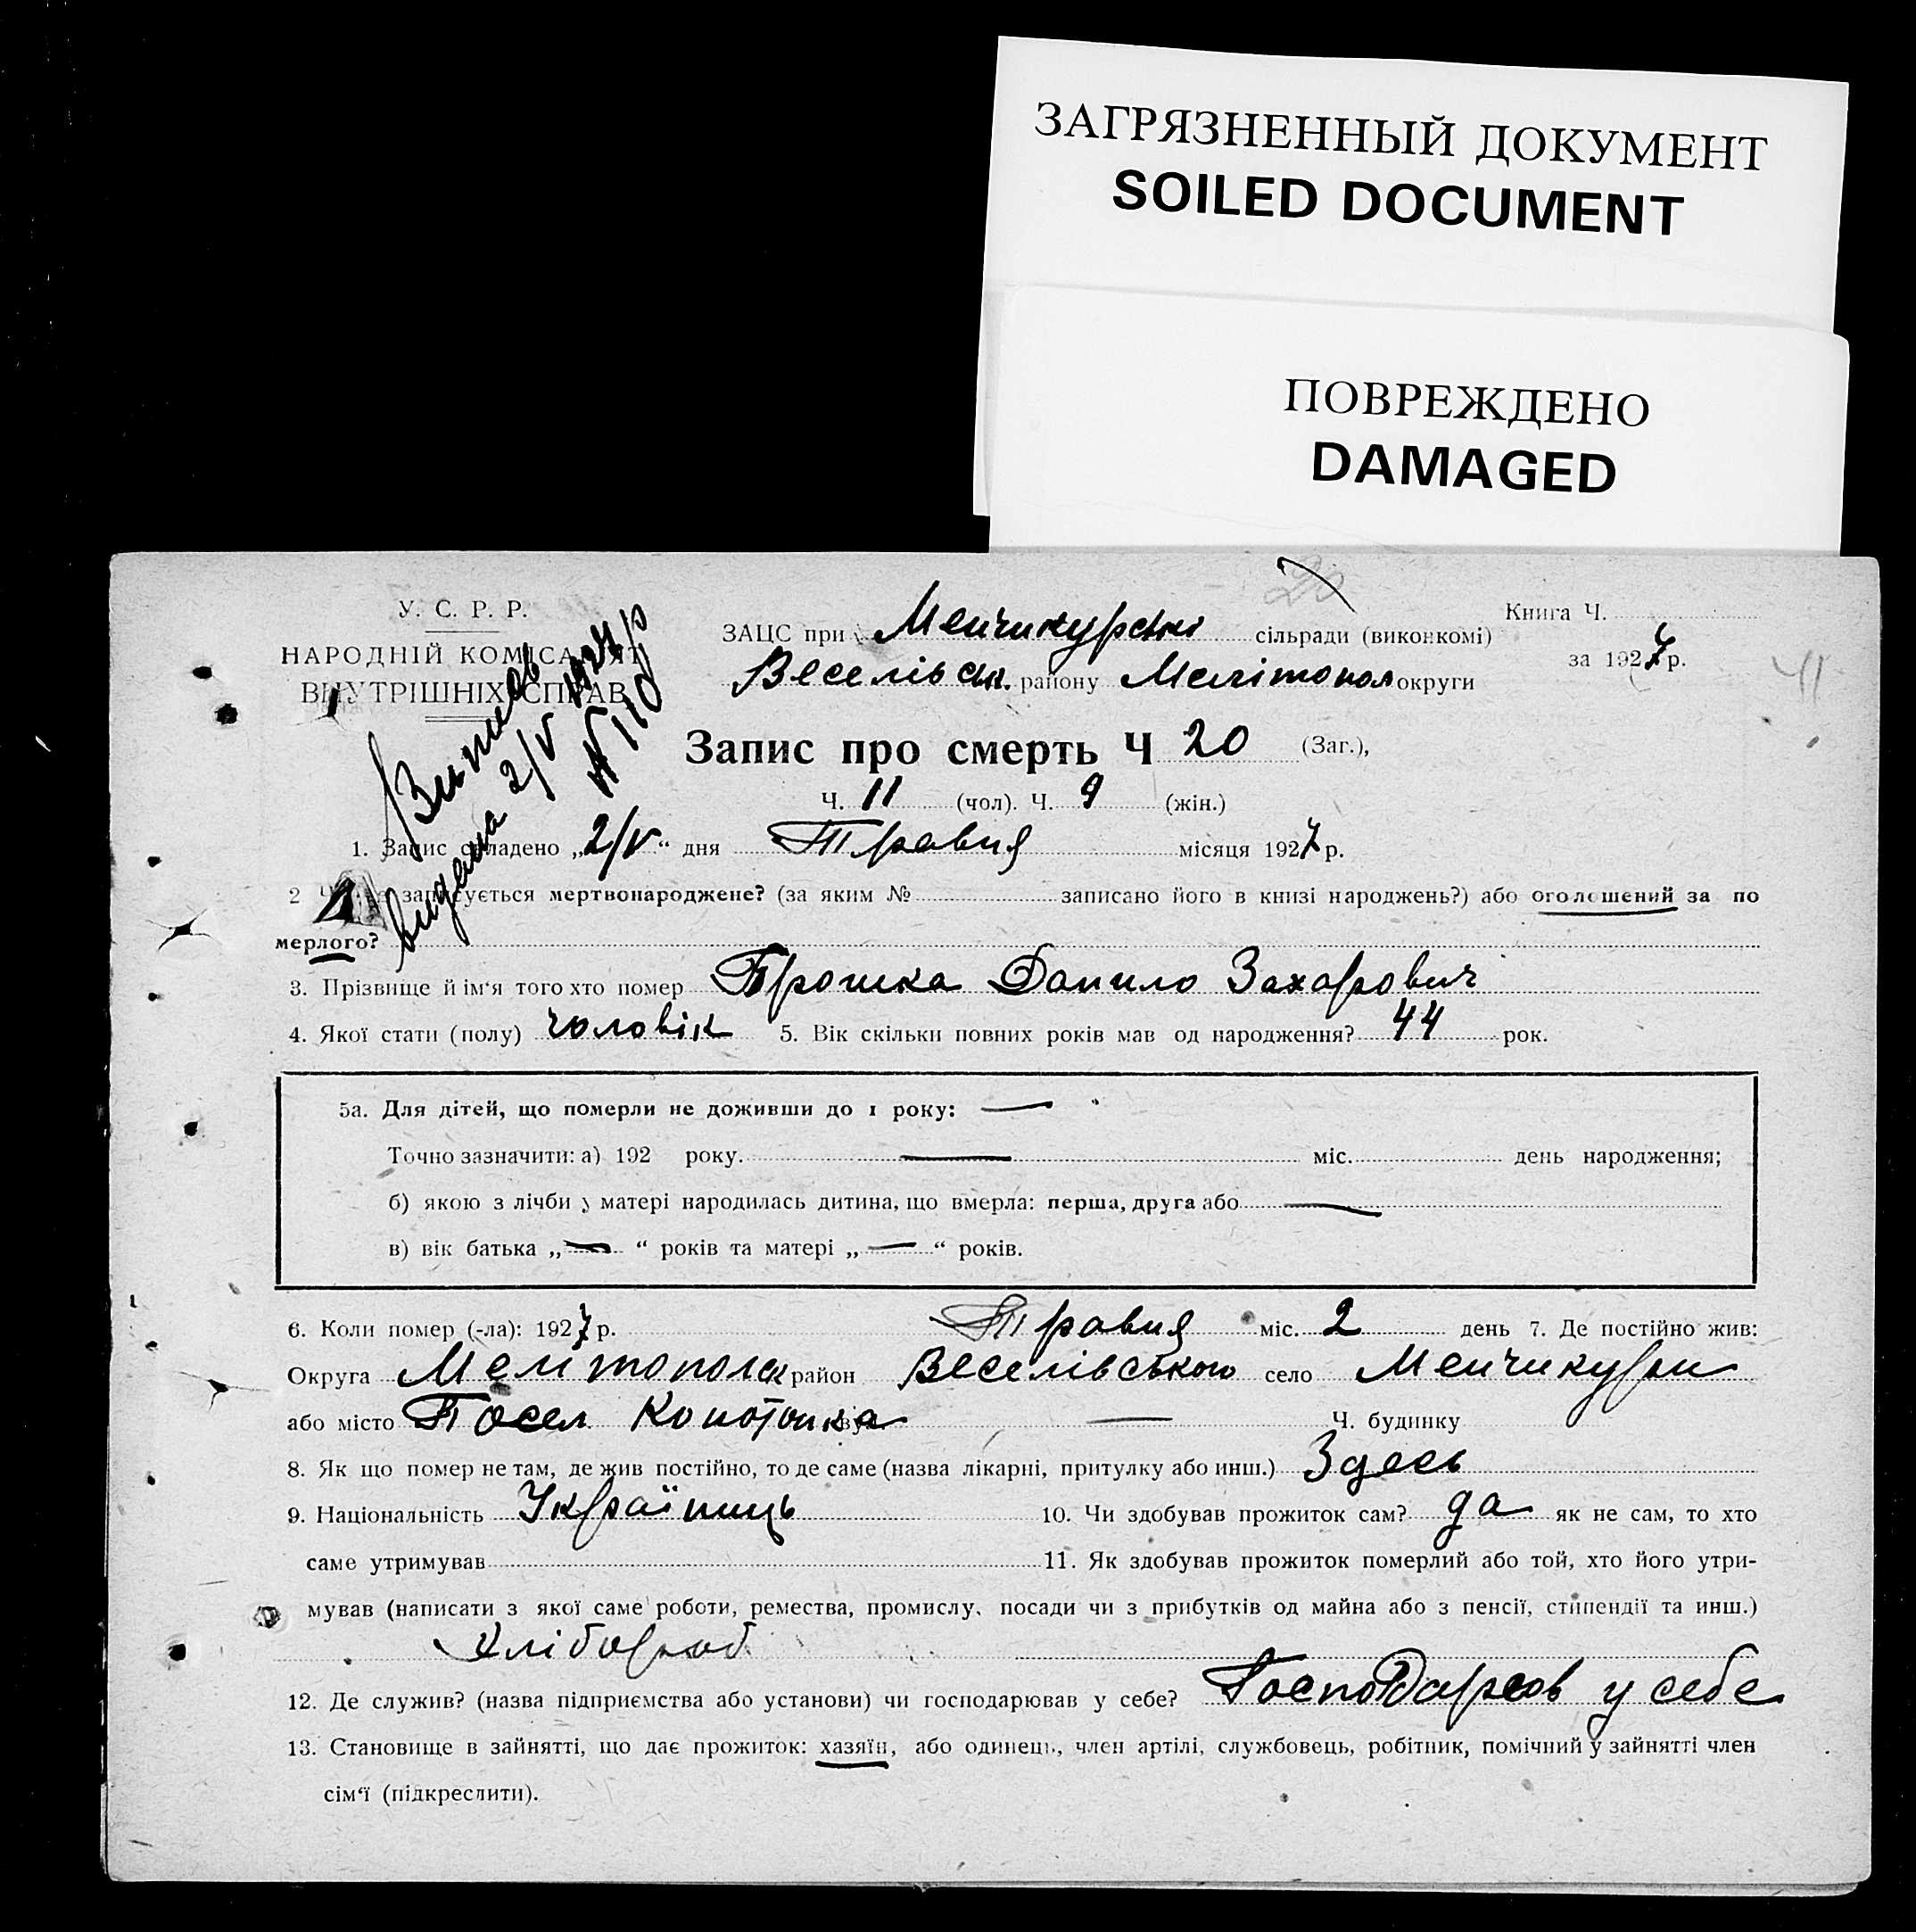 ЗАГРЯЗНЕННЫЙ ДОКУМЕНТ
SOILED DOCUMENT
ПОВРЕЖДЕНО
DAMAGED
20
У. С. Р. Р.
НАРОДНІЙ КОМІСАРІЯТ
ВНУТРІШНІХ СПРАВ
Книга Ч.
ЗАЦС при Менчикурскі сільради (виконкомі)
за 1927 р.
Веселівськ. району Мелітопол округи
41
Виписв
видана 2/V 1927 р
№ 110
Запис про смерть Ч 20 (Заг.),
Ч. 11 (чол). Ч. 9 (жін.)
1. Запис складено „2/V“ дня Травня місяця 1927 р.
2 Чи не записується мертвонароджене? (за яким № записано його в книзі народжень?) або оголошений за по
мерлого?
3. Прізвище й ім‘я того хто помер Трошка Данило Захарович
4. Якої стати (полу) чоловік 5. Вік скільки повних років мав од народження? 44 рок.
5а. Для дітей, що померли не доживши до 1 року: —
Точно зазначити: а) 192 року. — міс. день народження;
б) якою з лічби у матері народилась дитина, що вмерла: перша, друга або —
в) вік батька „—“ років та матері „—“ років.
6. Коли помер (-ла): 1927 р. Травня міс. 2 день 7. Де постійно жив:
Округа Мелітополск район Веселівського село Менчикури
або місто Посел Конотопка вул. — Ч. будинку
8. Як що помер не там, де жив постійно, то де саме (назва лікарні, притулку або инш.) Здесь
9. Національність Українць 10. Чи здобував прожиток сам? да як не сам, то хто
саме утримував 11. Як здобував прожиток померлий або той, хто його утри-
мував (написати з якої саме роботи, ремества, промислу, посади чи з прибутків од майна або з пенсії, стипендії та инш.)
Хлібороб
12. Де служив? (назва підприємства або установи) чи господарював у себе? Господарсов у себе
13. Становище в зайнятті, що дає прожиток: хазяїн, або одинець, член артілі, службовець, робітник, помічний у зайнятті член
сім‘ї (підкреслити).